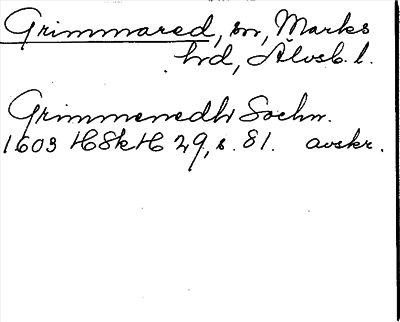 Grimmared, sn, Marks
hd, Älvsb. l.
Grimmeredh Sochn.
1603 HSkH 29, s. 81. avskr.